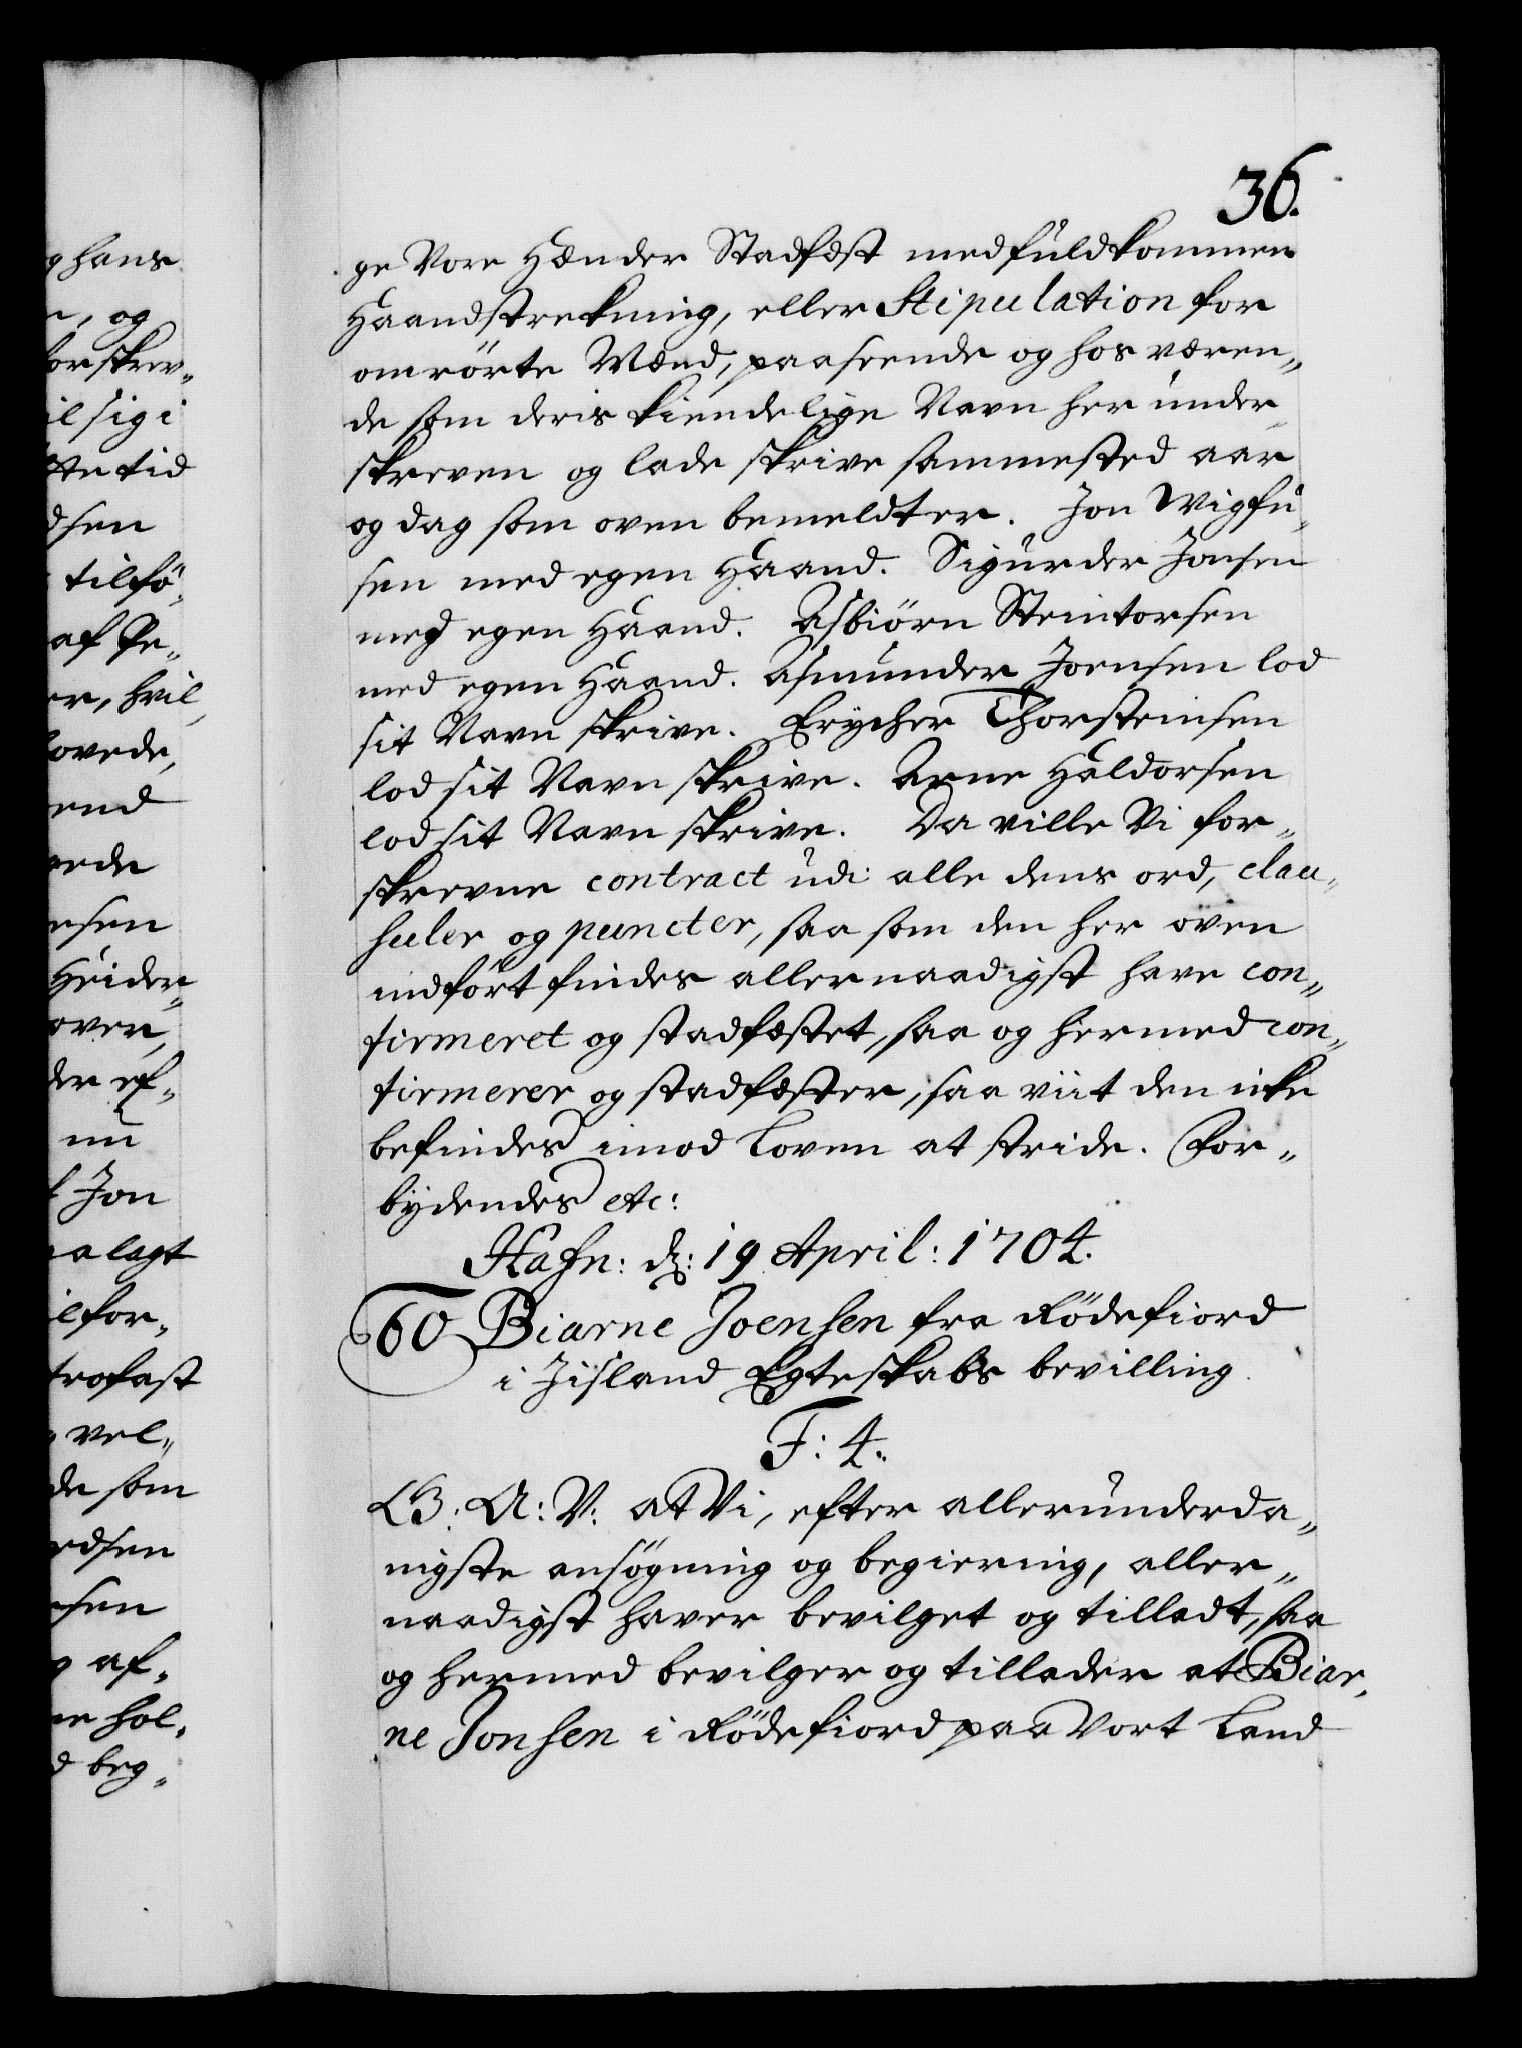 36.
ge Vore Hænder Stadfæst med fuldkommen
Haandstrekning, eller Stipulation for
omrörte Mænd, paaseende og hos væren„
de som deris kiendelige Navn her under„
skreven og lade skrive sammested aar
og dag som oven bemeldter. Jon Wigfu„
sen med egen Haand. Sigurder Jonsen
med egen Haand. Asbiörn Steintorsen
med egen Haand. Asmunder Joensen lod
sit Navn skrive. Erycher Thorsteinsen
lod sit Navn skrive. Arne Haldorsen
lod sit Navn skrive. Da ville Vi for„
skrevne contract udi alle dens ord, clau„
suler og puncter, saa som den her oven
indfört findes allernaadigst have con„
firmeret og stadfæstet, saa og hermed con„
firmerer og stadfæster, saa viit den icke
befindes imod Loven at stride. For„
bydendes etc:
Hafn: d: 19 April: 1704.
60 Biarne Joensen fra Rödefiord
i Jisland Egteskabs bevilling.
F: 4.
G: A: V: at Vi, efter allerunderda„
nigste ansögning og begiering, aller„
naadigst haver bevilget og tilladt, saa
og hermed bevilger og tillader at Biar„
ne Jonsen i Rödefiord paa Vort Land
g hans
, og
forskrev„
il sig i
tte tid
dsen
tilfö„
af Pe„
er, hvil„
lovede,
end
rede
esen
Heider„
over,
der ef„
nu
Jon
a lagt
ilfor„
trofast
vel„
de som
redsen
sen
af„
ne hol„
d beg„